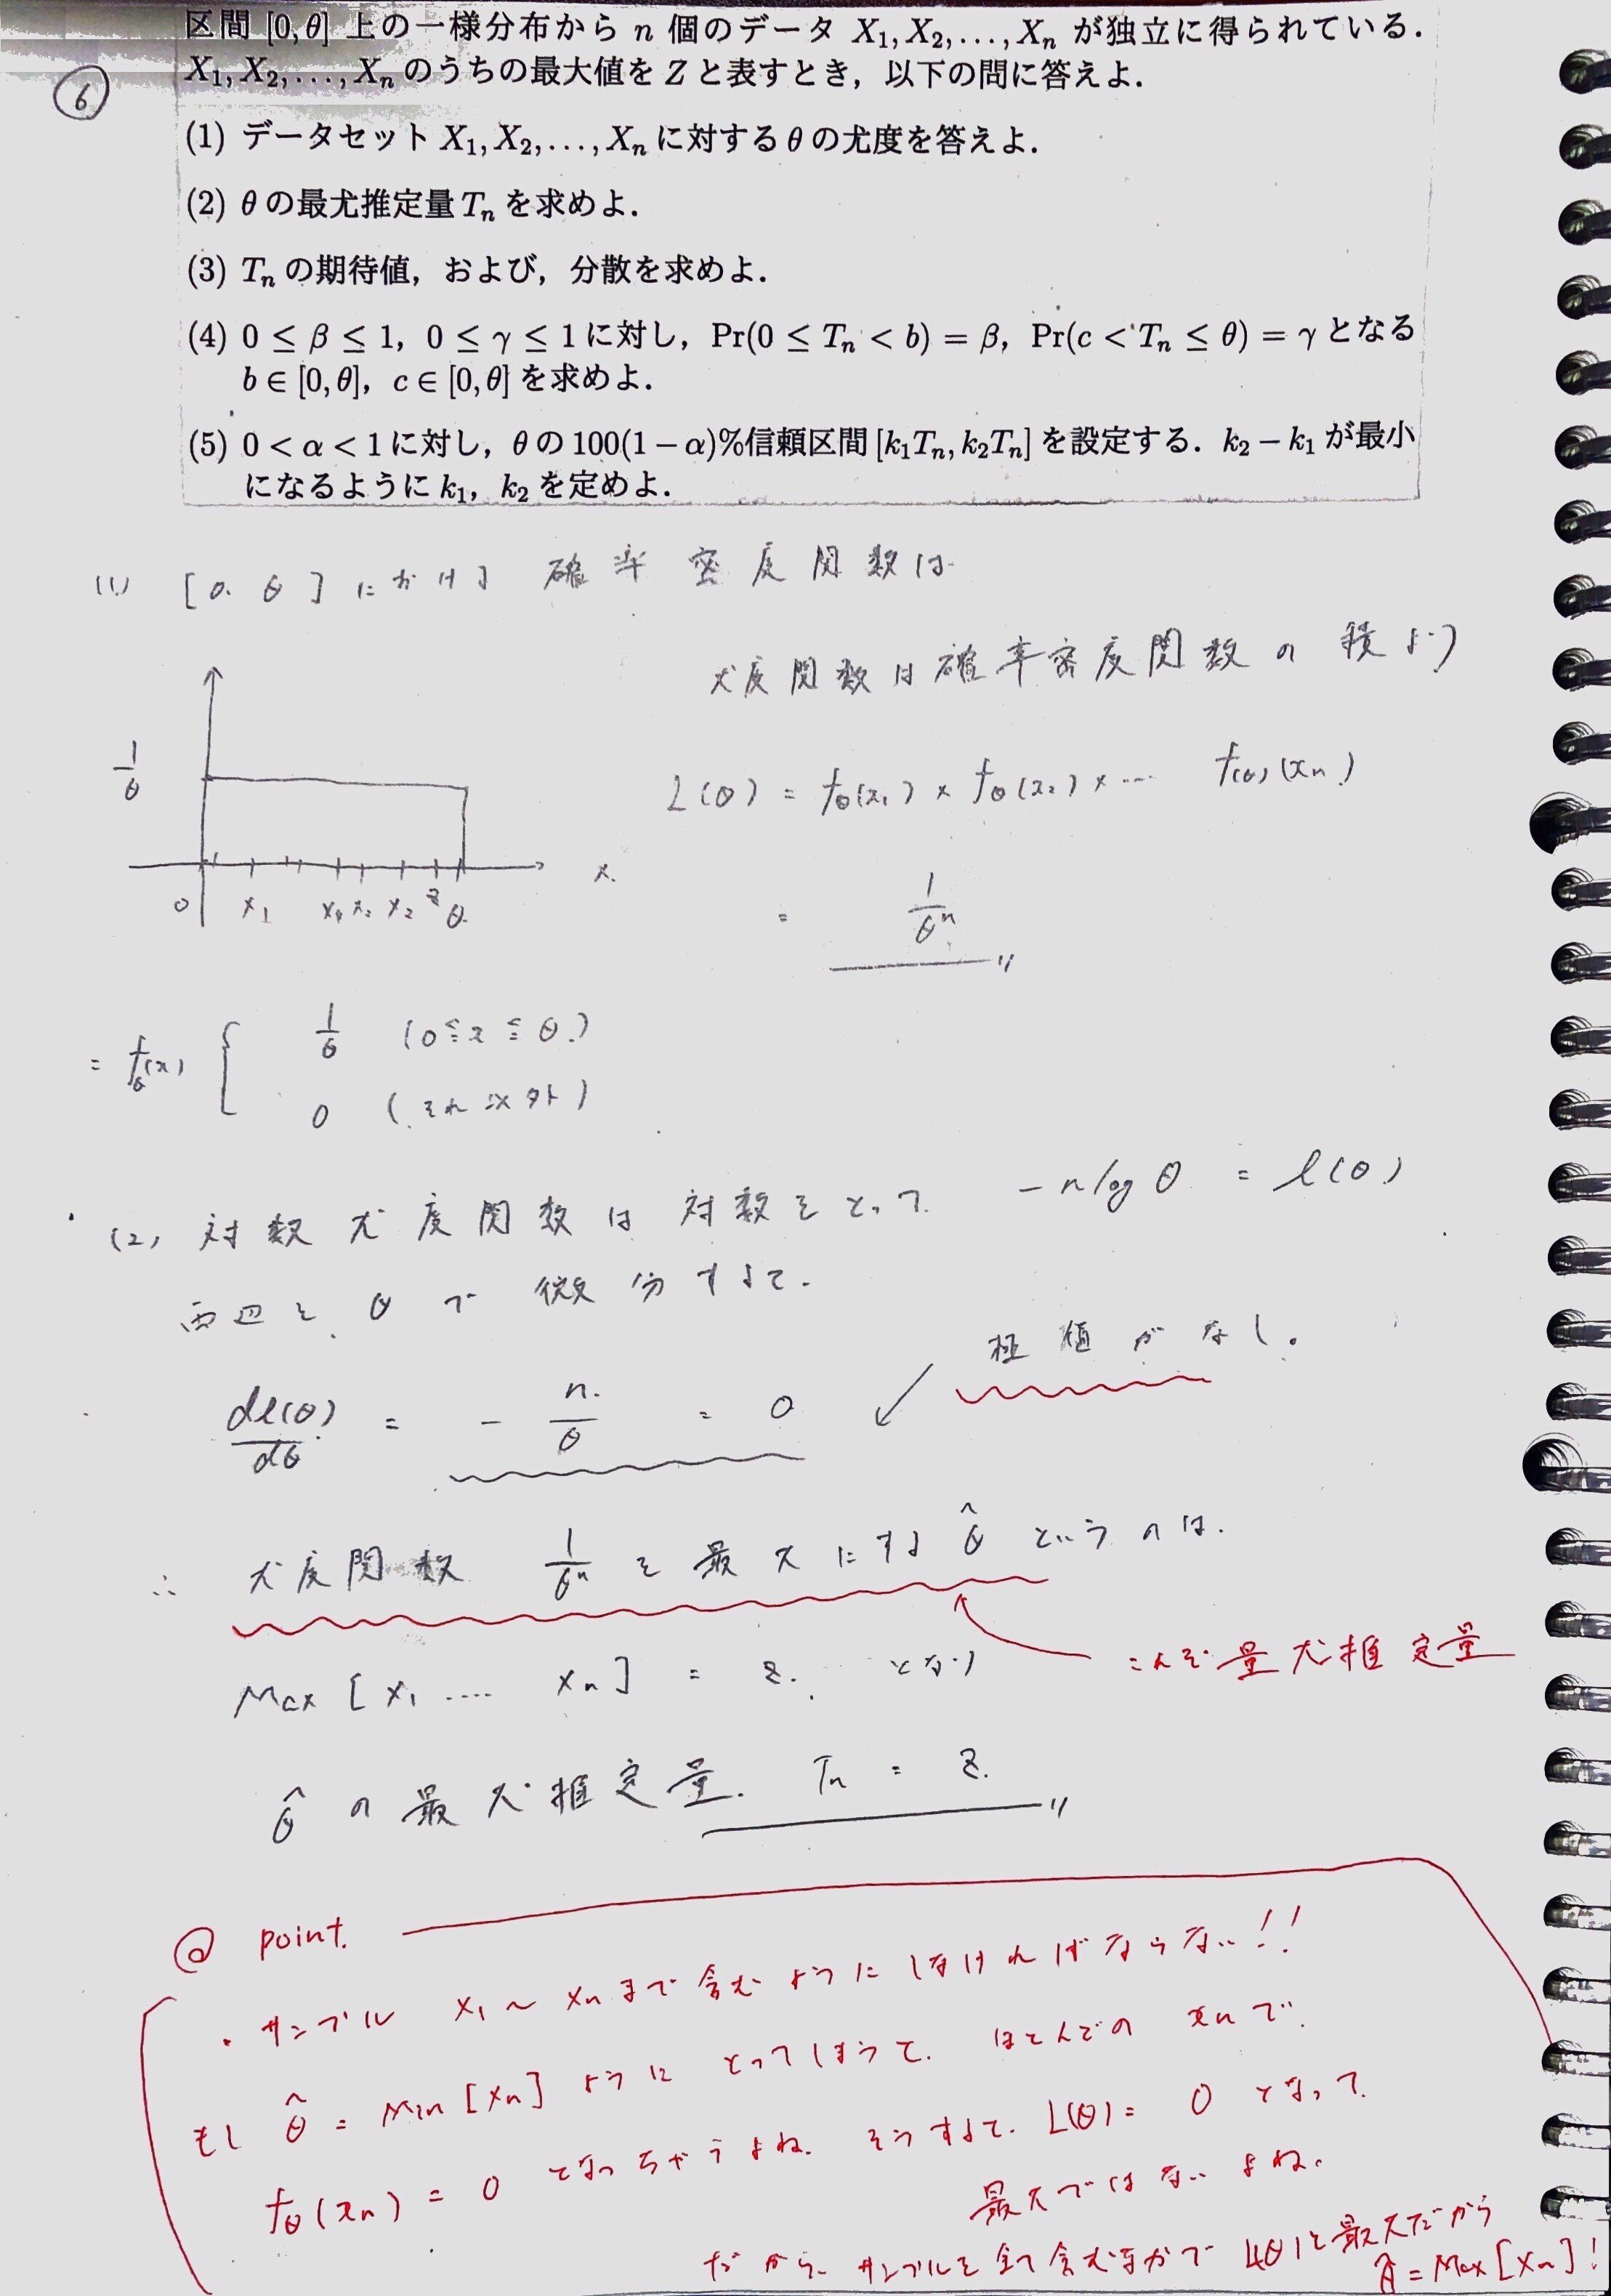 区間 [0, θ] 上の一様分布から n 個のデータ X₁, X₂, ..., Xₙ が独立に得られている.
X₁, X₂, ..., Xₙ のうちの最大値を Z と表すとき, 以下の問に答えよ.
⑥
(1) データセット X₁, X₂, ..., Xₙ に対する θ の尤度を答えよ.
(2) θ の最尤推定量 Tₙ を求めよ.
(3) Tₙ の期待値, および, 分散を求めよ.
(4) 0 ≤ β ≤ 1, 0 ≤ γ ≤ 1 に対し, Pr(0 ≤ Tₙ < b) = β, Pr(c < Tₙ ≤ θ) = γ となる
b ∈ [0, θ], c ∈ [0, θ] を求めよ.
(5) 0 < α < 1 に対し, θ の 100(1 − α)%信頼区間 [k₁Tₙ, k₂Tₙ] を設定する. k₂ − k₁ が最小
になるように k₁, k₂ を定めよ.
(1) [0. θ] における 確率密度関数は
尤度関数は確率密度関数の積より
1/θ
L(θ) = fθ(x₁) × fθ(x₂) × ···· f(θ)(xₙ)
0 x₁ x₄ x₂ z θ x.
= 1/θⁿ
= fθ(x) { 1/θ (0≦x≦θ)
0 (それ以外)
(2) 対数尤度関数は対数をとって − n log θ = ℓ(θ)
両辺を θ で 微分すると.
極値がなし。
dℓ(θ)/dθ = − n/θ = 0
∴ 尤度関数 1/θⁿ を最大にする θ̂ というのは.
これぞ最尤推定量
Max [x₁ ···· xₙ] = z. となり
θ̂ の最尤推定量. Tₙ = z.
@ point.
・サンプル x₁ ~ xₙ まで含むようにしなければならない!!
もし θ̂ = Min [xₙ] ように とってしまうと. ほとんどの xₙ で.
fθ(xₙ) = 0 となっちゃうよね. そうすると. L(θ) = 0 となって
最大ではないよね.
だから サンプルを全て含むなかで L(θ) を最大だから
θ̂ = Max [xₙ]!